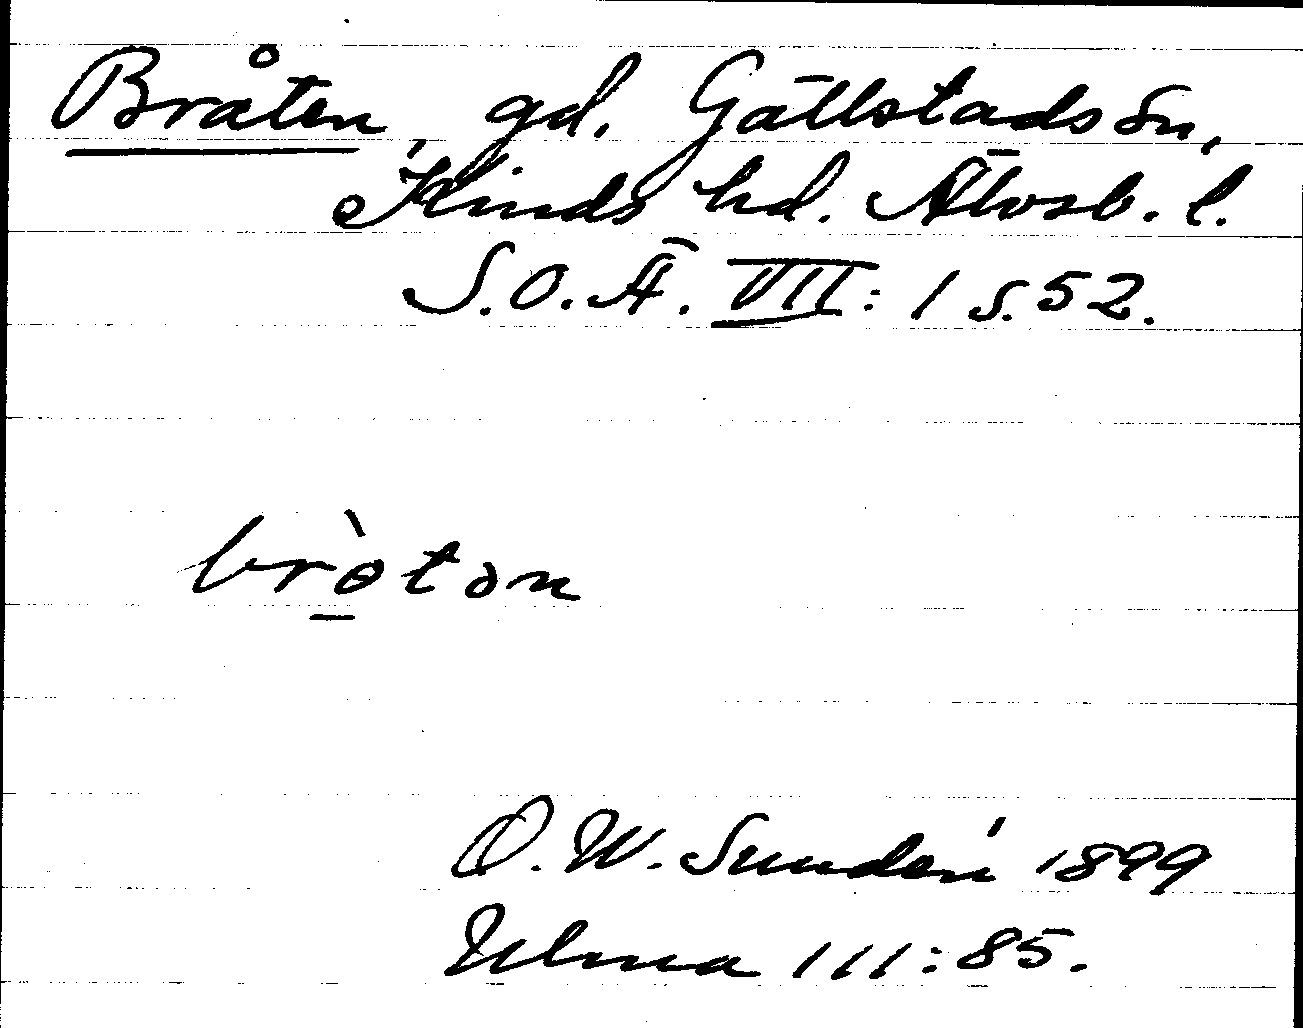 Bråten, gd. Gällstads sn,
Kinds hd. Älvsb. l.
S.O.Ä. VII: 1 s. 52.
brò̱tən
D. W. Sundén 1899
Ulma 111:85.